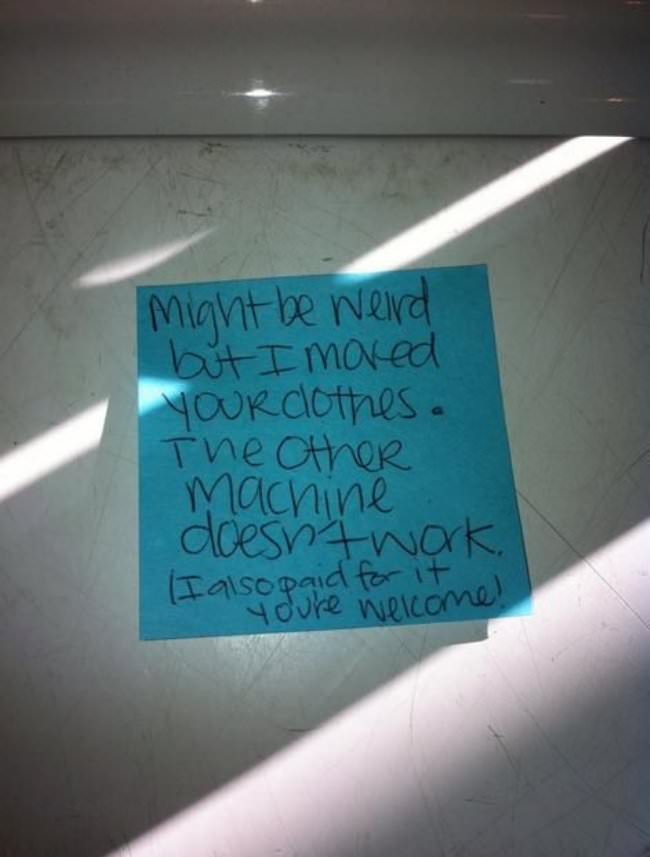 Might be weird
but I moved
your clothes.
The other
machine
doesn't work.
(I also paid for it
you're welcome!